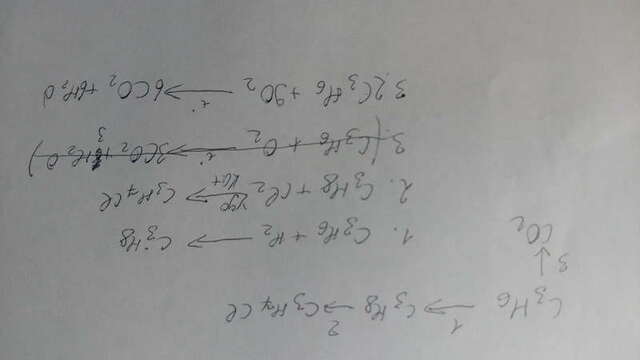 C₃H₆ →¹ C₃H₈ →² C₃H₇Cl
↓ 3
CO₂
1. C₃H₆ + H₂ → C₃H₈
2. C₃H₈ + Cl₂ → C₃H₇Cl
кат
3. (C₃H₆ + O₂ →t° 3CO₂ + 3H₂O)
3. 2C₃H₆ + 9O₂ →t° 6CO₂ + 6H₂O